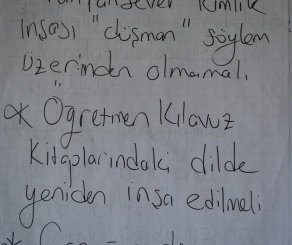 Kimlik
inşası "düşman" söylem
üzerinden olmamalı.
* Öğretmen Kılavuz
Kitaplarındaki dilde
yeniden inşa edilmeli
*